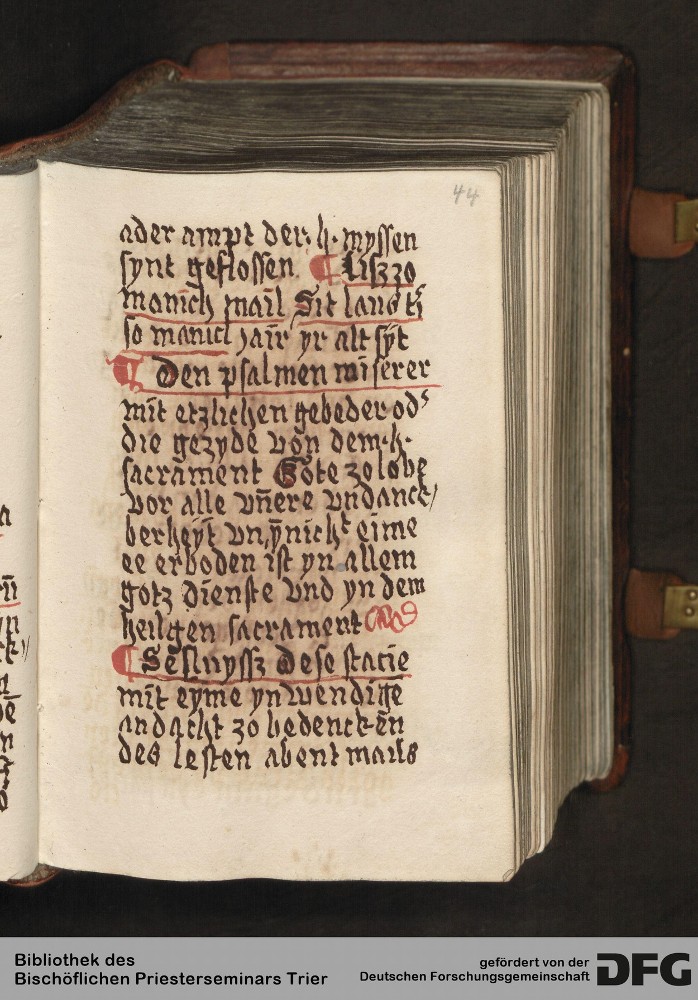 44
ader ampt der· h· myssen
synt geslossen. ¶ Lisz zo
manich mail Sit laus ti͛
so manich jair yr alt sÿt
¶ Den psalmen miserer
mit etzlichen gebeder od͛
die gezyde võn dem·h·
sacrament Gote zo lobe
vor alle vn̄ere vndanck/
berheÿt vn̄ ÿnicht eime
ee erboden ist yn allem
gotz dienste vnd yn dem
heilgen sacrament
¶ Sesluyssz Dese stacie
mit eyme ynwendige
andacht zo bedencken
des lesten abent mails
Bibliothek des
Bischöflichen Priesterseminars Trier
gefördert von der
Deutschen Forschungsgemeinschaft
DFG